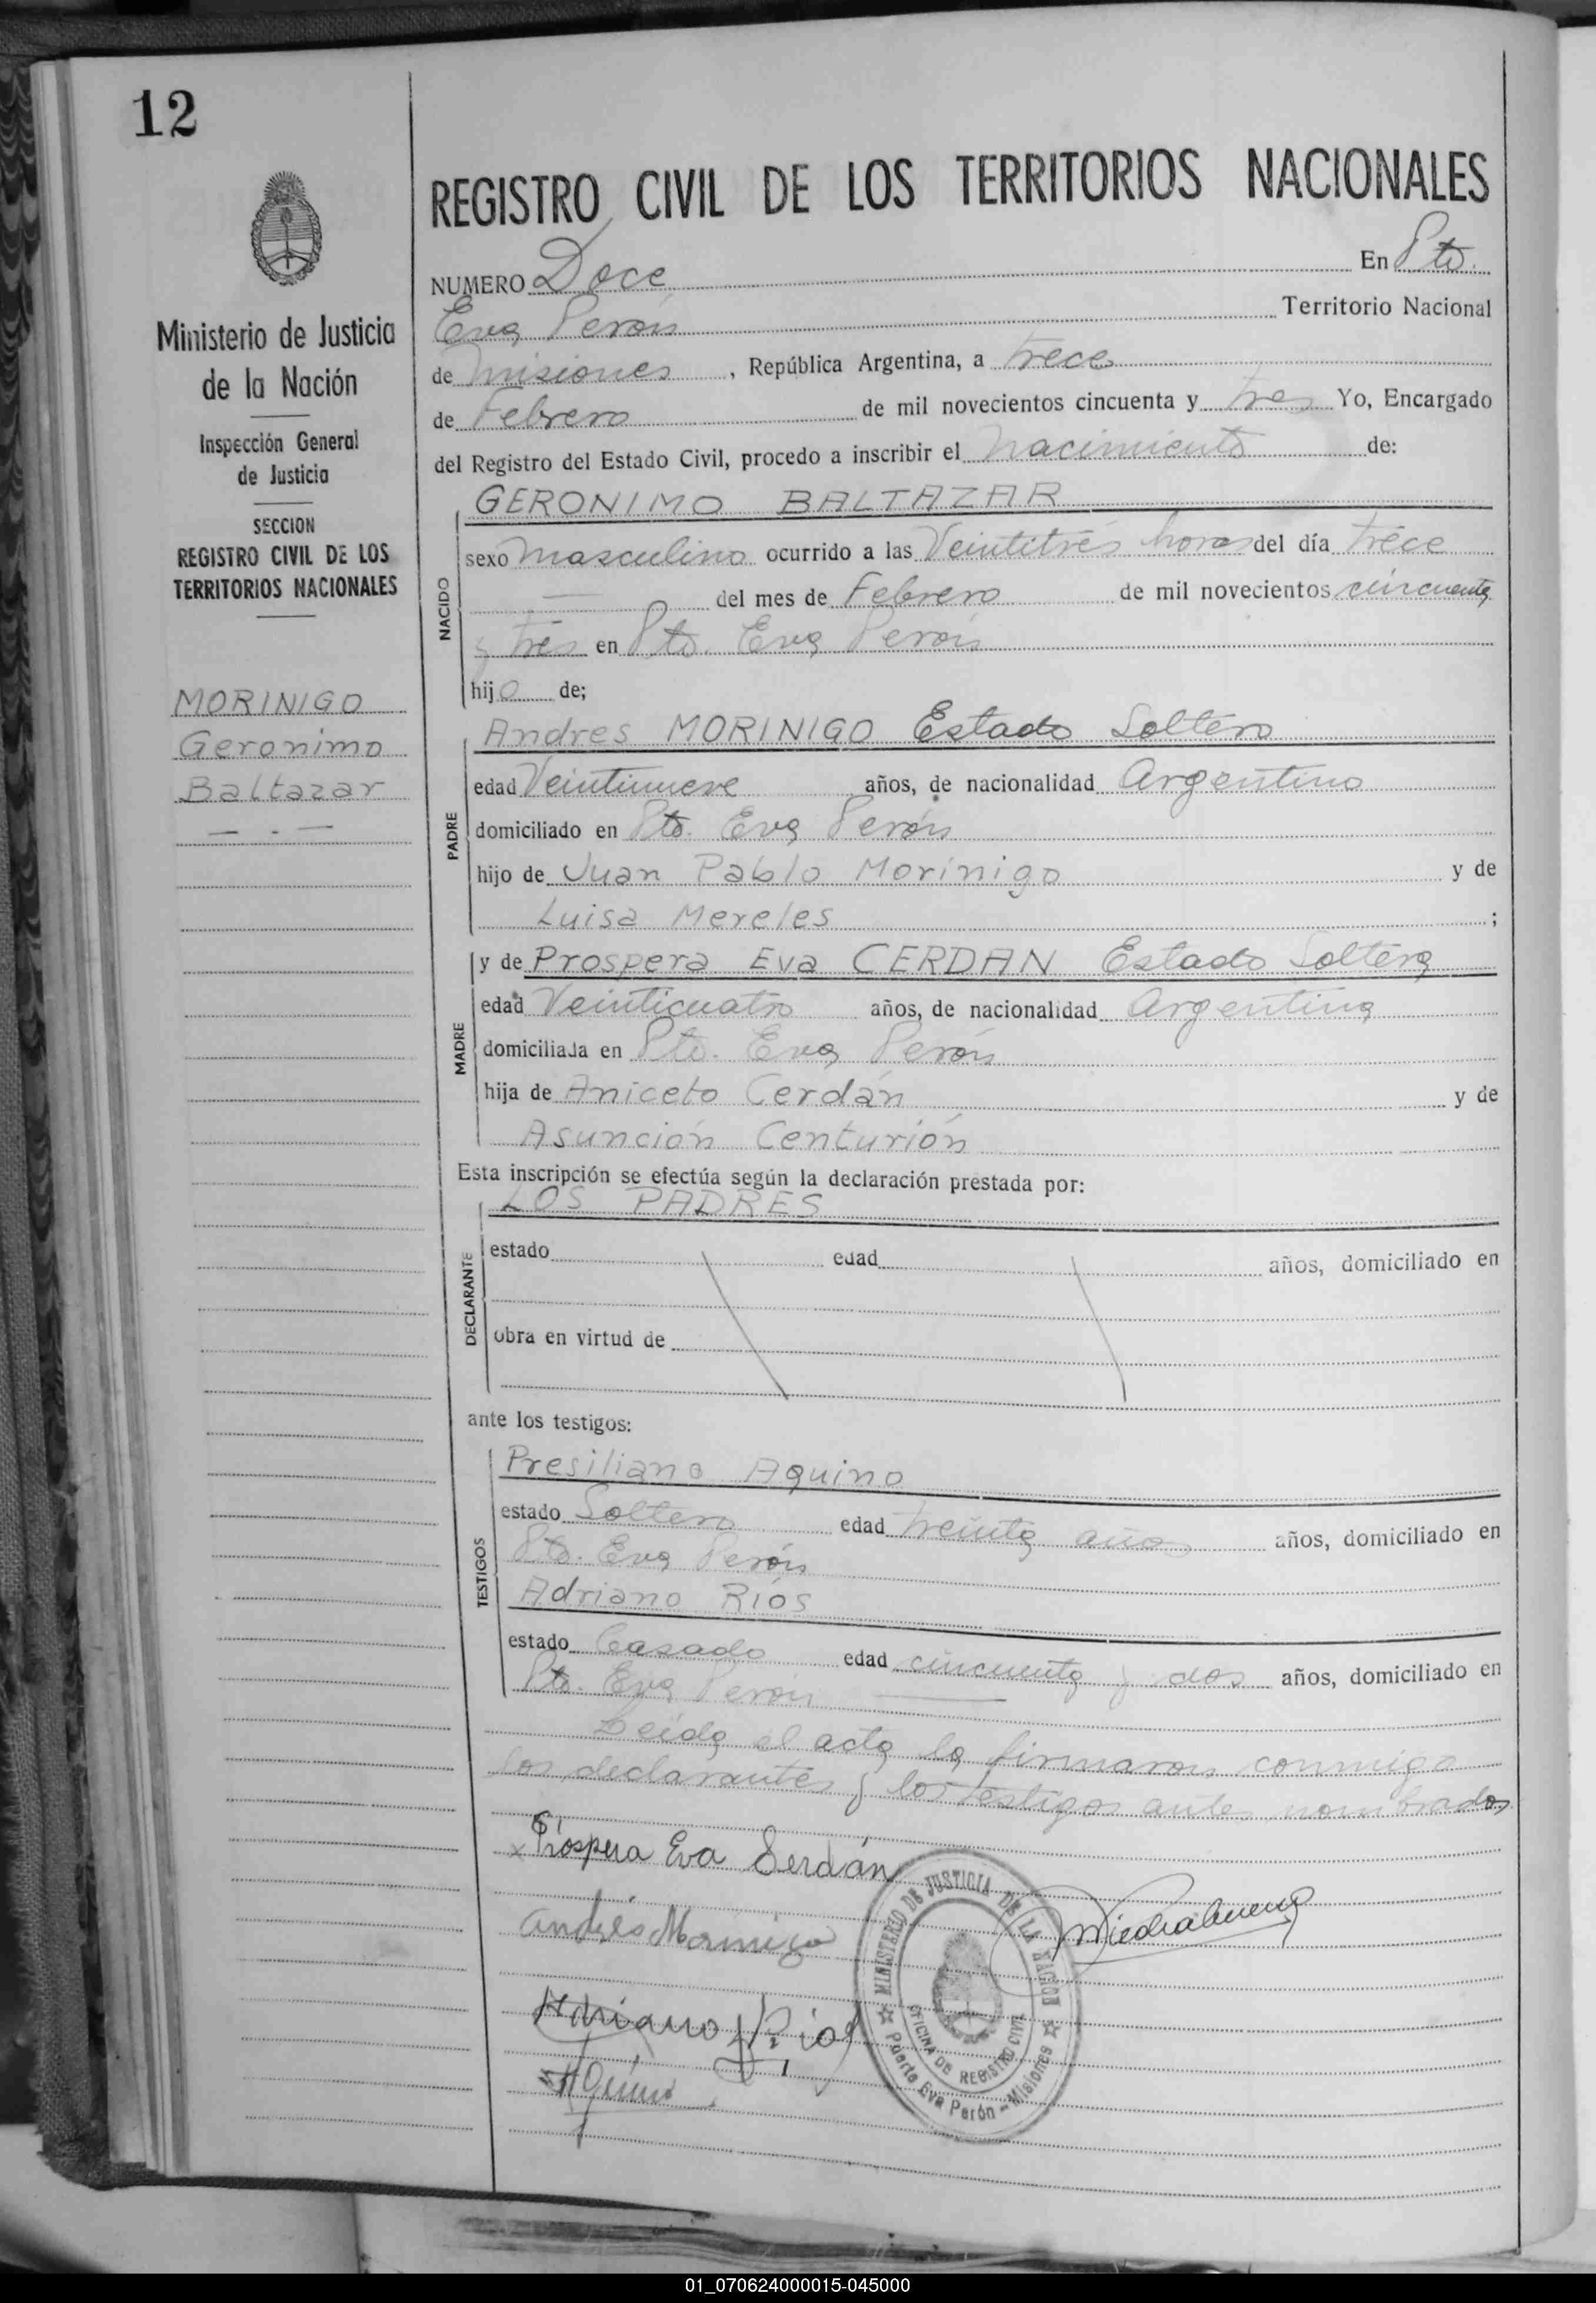 12
Ministerio de Justicia
de la Nación
Inspección General
de Justicia
SECCION
REGISTRO CIVIL DE LOS
TERRITORIOS NACIONALES
MORINIGO
Geronimo
Baltazar
— . —
REGISTRO CIVIL DE LOS TERRITORIOS NACIONALES
NUMERO Doce En Pto.
Eva Perón Territorio Nacional
de Misiones, República Argentina, a trece
de Febrero de mil novecientos cincuenta y tres Yo, Encargado
del Registro del Estado Civil, procedo a inscribir el nacimiento de:
NACIDO
GERONIMO BALTAZAR
sexo masculino ocurrido a las Veintitrés horas del día trece
— del mes de Febrero de mil novecientos cincuenta
y tres en Pto. Eva Perón
hijo de;
PADRE
Andres MORINIGO Estado Soltero
edad Veintinueve años, de nacionalidad Argentino
domiciliado en Pto. Eva Perón
hijo de Juan Pablo Morínigo y de
Luisa Mereles ;
MADRE
y de Prospera Eva CERDAN Estado Soltera
edad Veinticuatro años, de nacionalidad Argentina
domiciliada en Pto. Eva Perón
hija de Aniceto Cerdán y de
Asunción Centurión
Esta inscripción se efectúa según la declaración prestada por:
DECLARANTE
LOS PADRES
estado edad años, domiciliado en
obra en virtud de
ante los testigos:
TESTIGOS
Presiliano Aquino
estado Soltero edad treinta años años, domiciliado en
Pto. Eva Perón
Adriano Ríos
estado Casado edad cincuenta y dos años, domiciliado en
Pto. Eva Perón —
Leída el acta la firmaron conmigo
los declarantes y los testigos antes nombrados
x Próspera Eva Serdán
Andrés Morinigo
Adriano Ríos
Aquino
MINISTERIO DE JUSTICIA DE LA NACION
OFICINA DE REGISTRO CIVIL
Puerto Eva Perón - Misiones
01_070624000015-045000